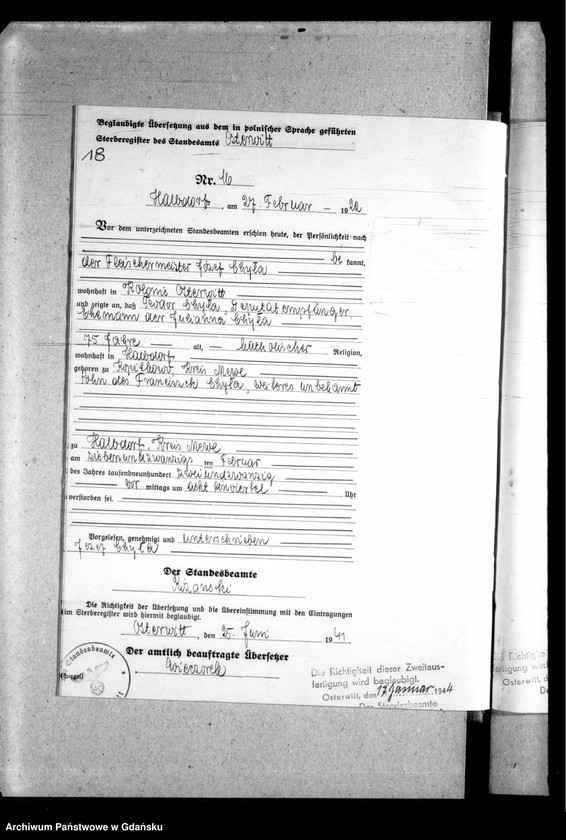 Beglaubigte Übersetzung aus dem in polnischer Sprache geführten
Sterberegister des Standesamts Osterwitt
18
Nr. 16
Halbdorf, am 27 Februar 1922
Vor dem unterzeichneten Standesbeamten erschien heute, der Persönlichkeit nach
be kannt,
der Fleischermeister Józef Chyła
wohnhaft in Kolonie Osterwitt
und zeigte an, daß Teodor Chyła, Deputatempfänger,
Ehemann der Julianna Chyła
75 Jahre alt, katholischer Religion,
wohnhaft in Halbdorf
geboren zu Kopitkowo, Kreis Mewe
Sohn des Franciszek Chyła, weiteres unbekannt
zu Halbdorf, Kreis Mewe
am siebenundzwanzigs ten Februar
des Jahres tausendneunhundert zweiundzwanzig
vor mittags um acht Uhr
verstorben sei.
Vorgelesen, genehmigt und unterschrieben
Józef Chyła
Der Standesbeamte
Die Richtigkeit der Übersetzung und die Übereinstimmung mit den Eintragungen
im Sterberegister wird hiermit beglaubigt.
Osterwitt, den 25. Juni 1941
Der amtlich beauftragte Übersetzer
Wieczorek
Standesbeamte
(Siegel)
Die Richtigkeit dieser Zweitaus-
fertigung wird beglaubigt.
Osterwitt, den 17 Januar 1944
Der Standesbeamte
Archiwum Państwowe w Gdańsku